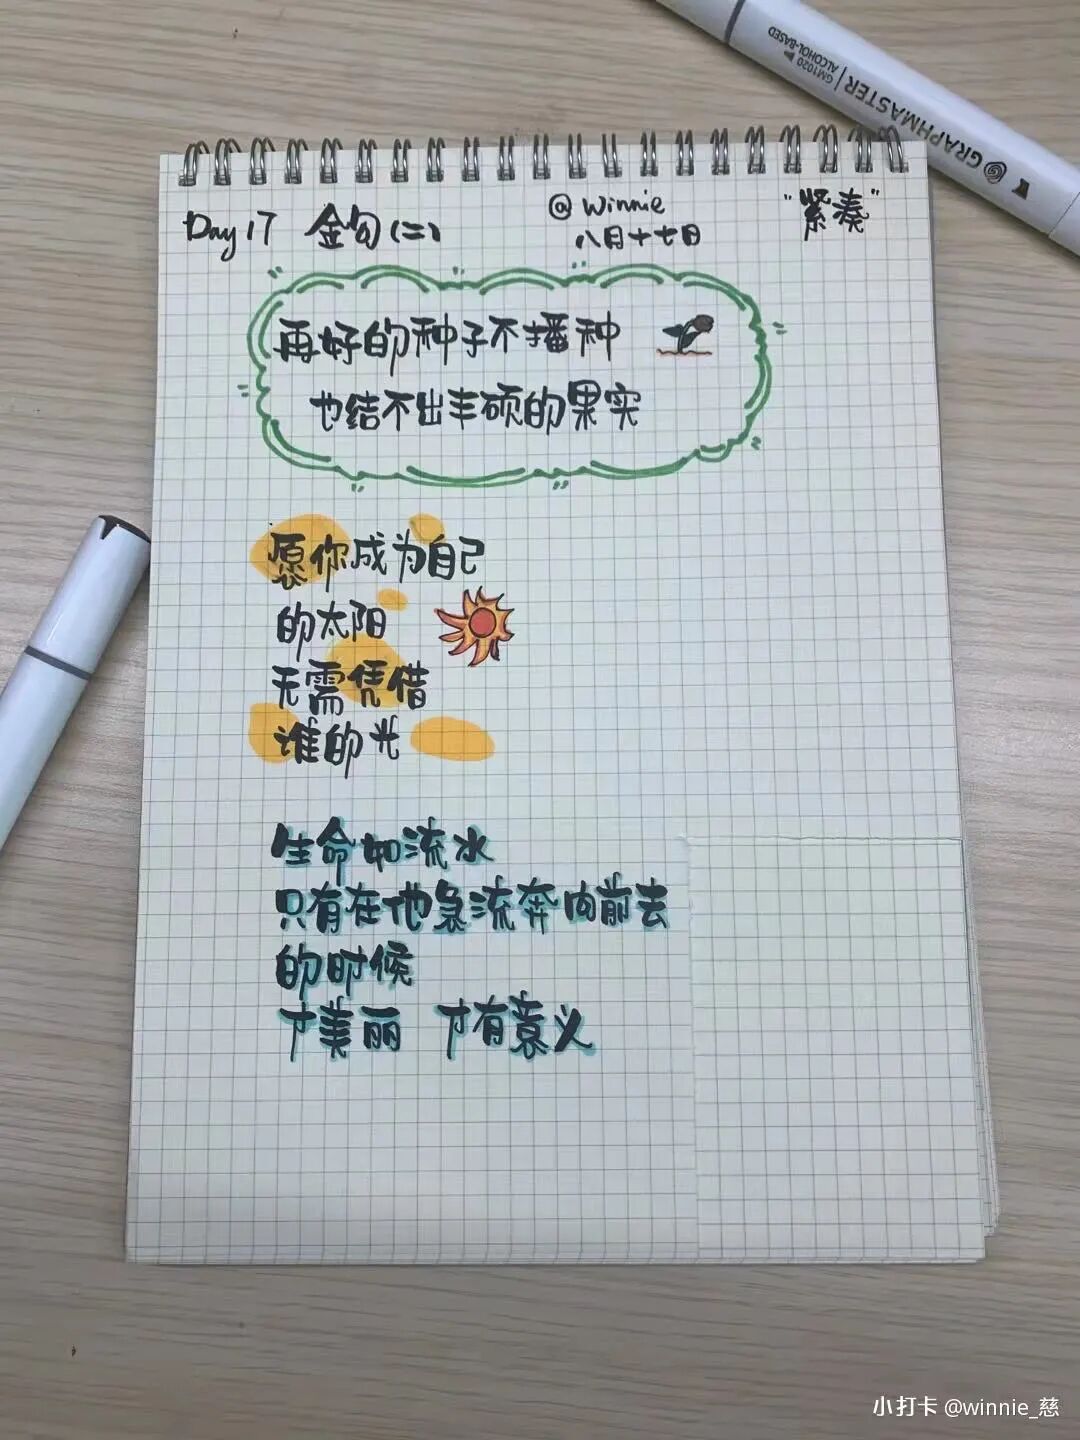 Day 17 金句(二) @winnie "紧凑"
八月十七日
再好的种子不播种
也结不出丰硕的果实
愿你成为自己
的太阳
无需凭借
谁的光
生命如流水
只有在他急流奔向前去
的时候
才美丽 才有意义
GRAPHMASTER
GM1020
ALCOHOL-BASED
小打卡 @winnie_慈